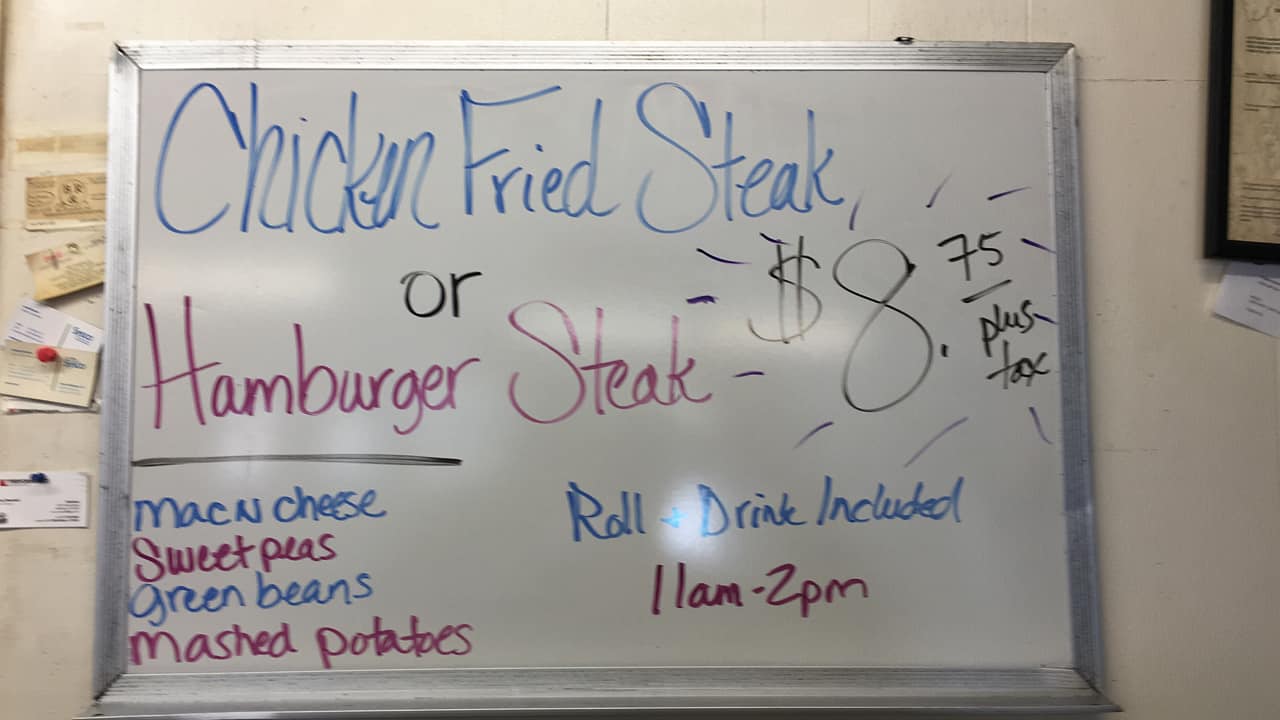 Chicken Fried Steak
or
Hamburger Steak - $8.75
plus
tax
Mac N cheese
Sweet peas
green beans
mashed potatoes
Roll + Drink Included
11am-2pm